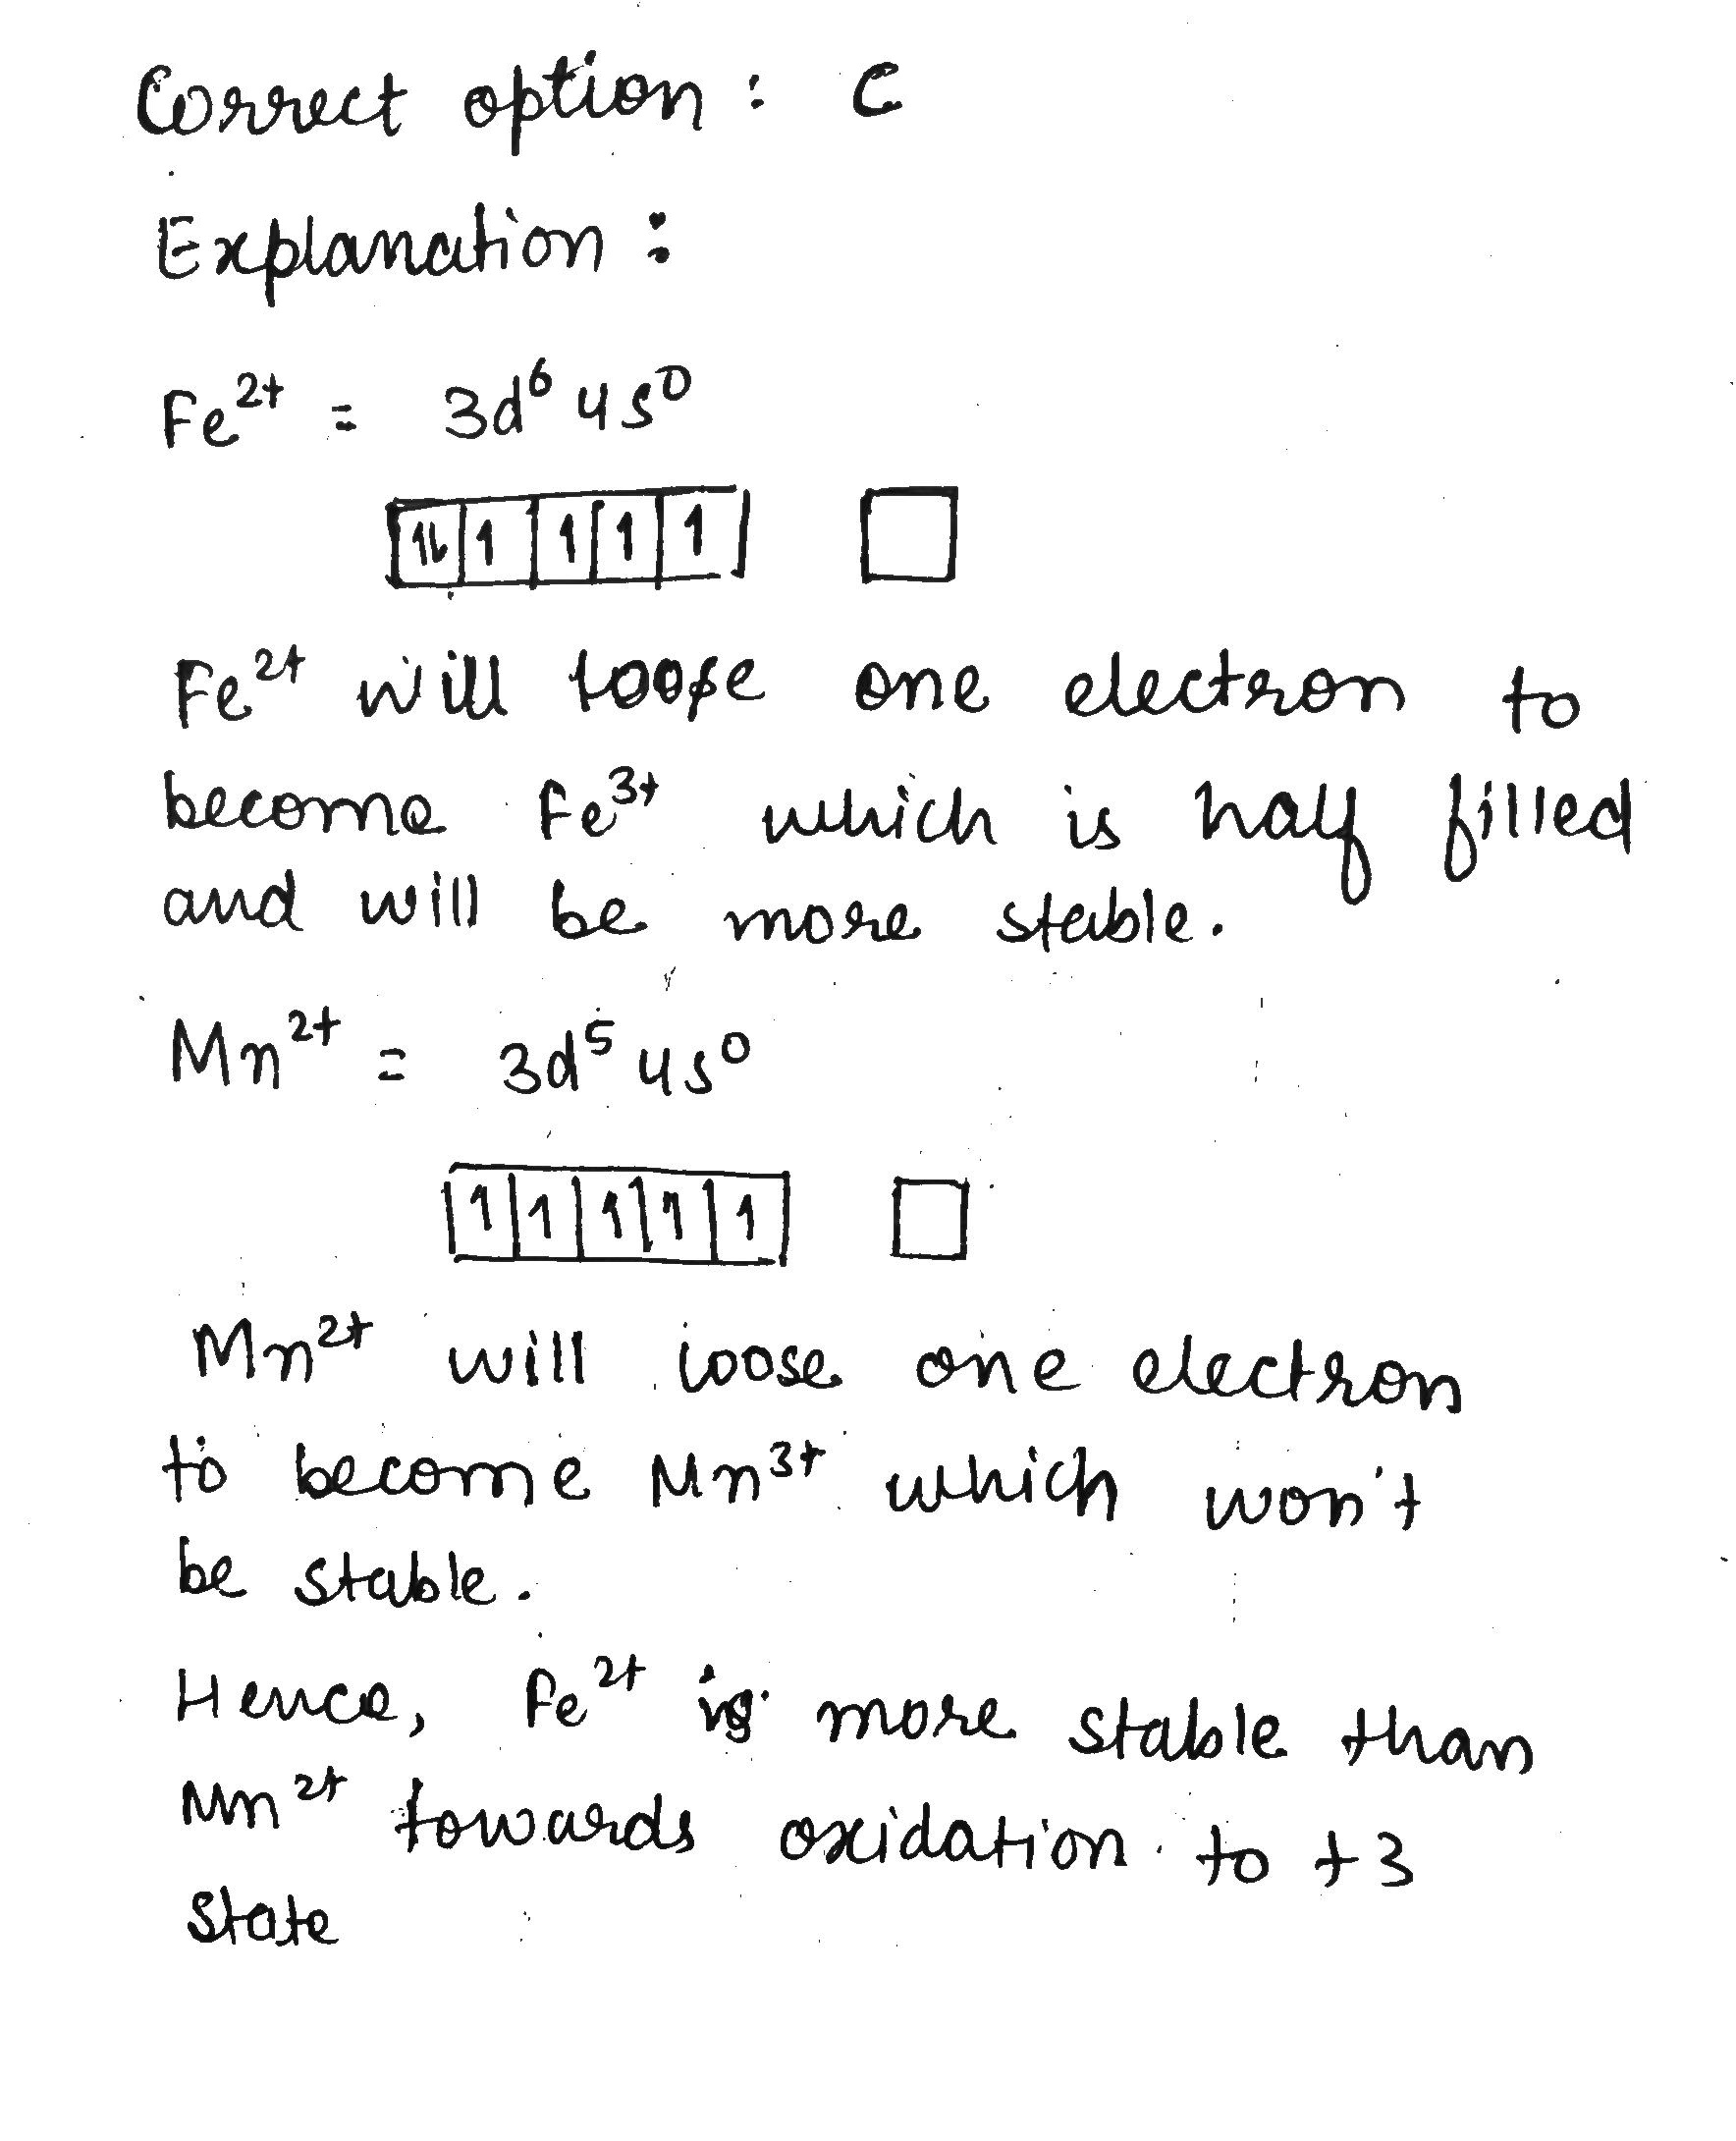 Correct option : C
Explanation :
Fe²⁺ = 3d⁶ 4s⁰
1⇂ 1 1 1 1
Fe²⁺ will loose one electron to
become Fe³⁺ which is half filled
and will be more stable.
Mn²⁺ = 3d⁵ 4s⁰
1 1 1 1 1
Mn²⁺ will loose one electron
to become Mn³⁺ which won't
be stable.
Hence, Fe²⁺ is more stable than
Mn²⁺ towards oxidation to +3
state